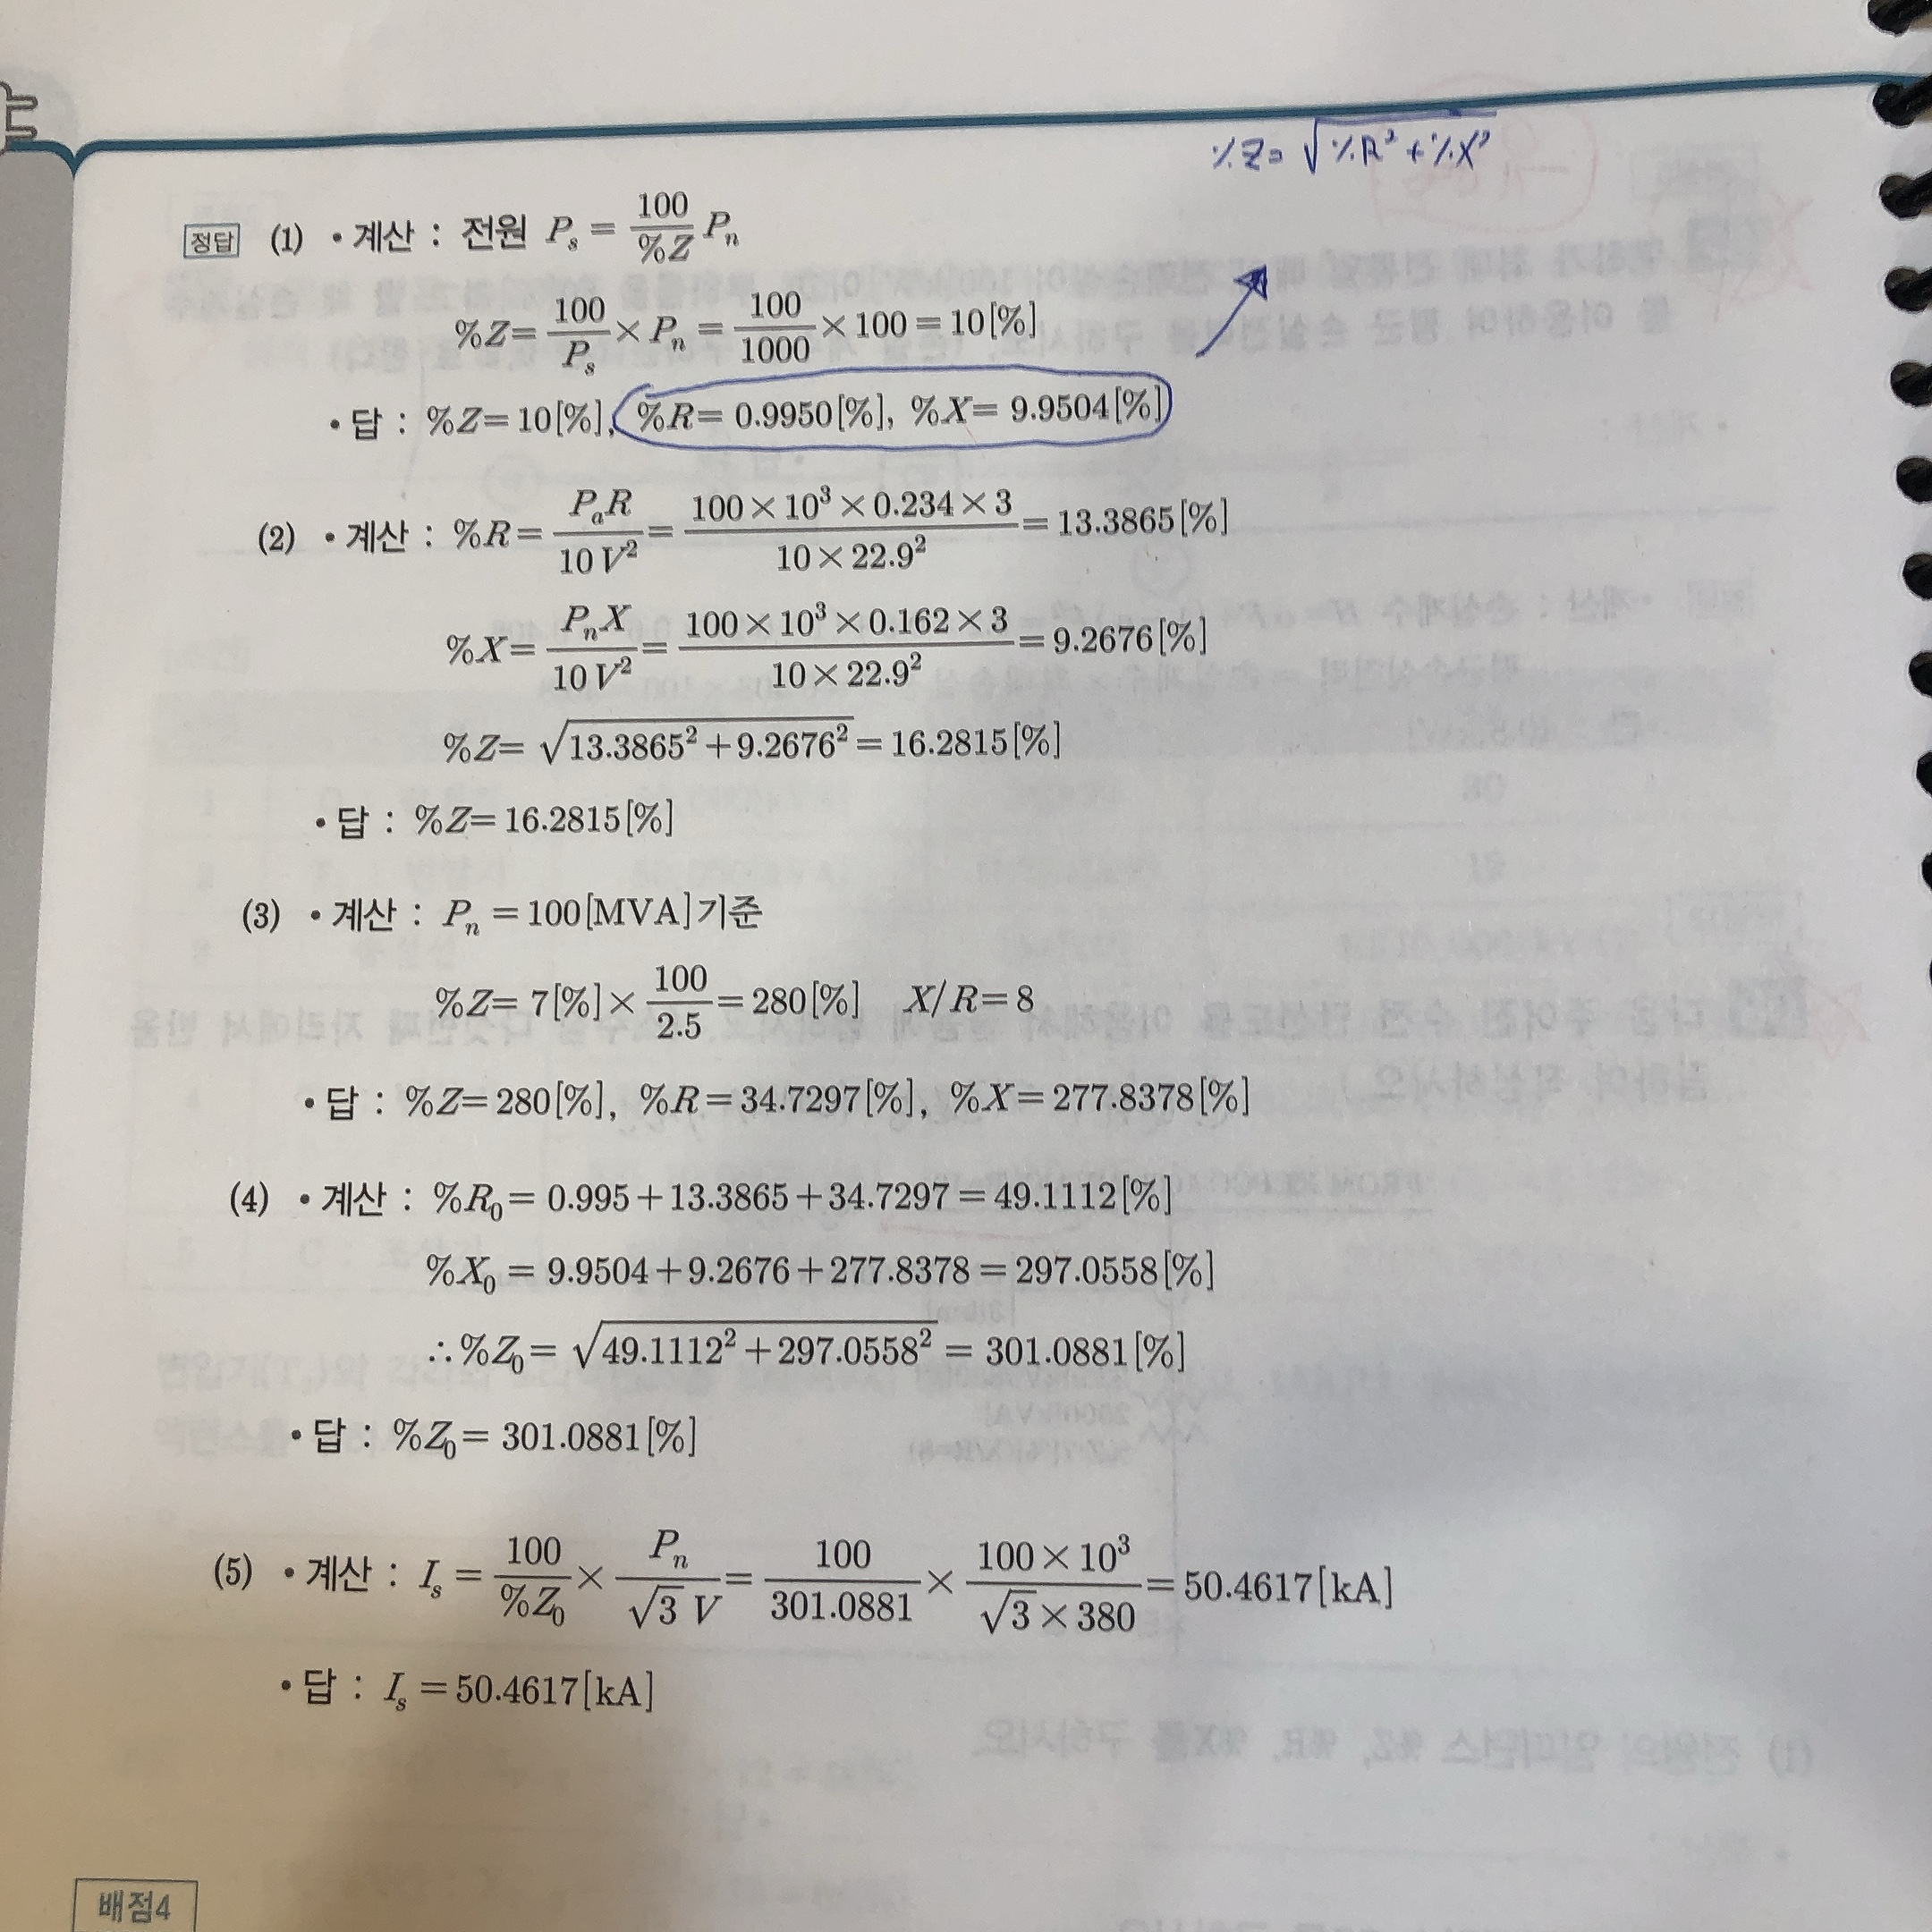 %Z= √%R² + %X²
정답 (1) • 계산 : 전원 Pₛ = 100/%Z Pₙ
%Z= 100/Pₛ × Pₙ = 100/1000 × 100 = 10[%]
• 답 : %Z= 10[%], %R= 0.9950[%], %X= 9.9504[%]
(2) • 계산 : %R= PₐR/10V² = 100×10³×0.234×3/10×22.9² = 13.3865[%]
%X= PₙX/10V² = 100×10³×0.162×3/10×22.9² = 9.2676[%]
%Z= √13.3865²+9.2676² = 16.2815[%]
• 답 : %Z= 16.2815[%]
(3) • 계산 : Pₙ = 100[MVA]기준
%Z= 7[%]× 100/2.5 = 280[%] X/R= 8
• 답 : %Z= 280[%], %R= 34.7297[%], %X= 277.8378[%]
(4) • 계산 : %R₀= 0.995+13.3865+34.7297 = 49.1112[%]
%X₀ = 9.9504+9.2676+277.8378 = 297.0558[%]
∴ %Z₀= √49.1112²+297.0558² = 301.0881[%]
• 답 : %Z₀= 301.0881[%]
(5) • 계산 : Iₛ = 100/%Z₀ × Pₙ/√3 V = 100/301.0881 × 100×10³/√3×380 = 50.4617[kA]
• 답 : Iₛ = 50.4617[kA]
배점4